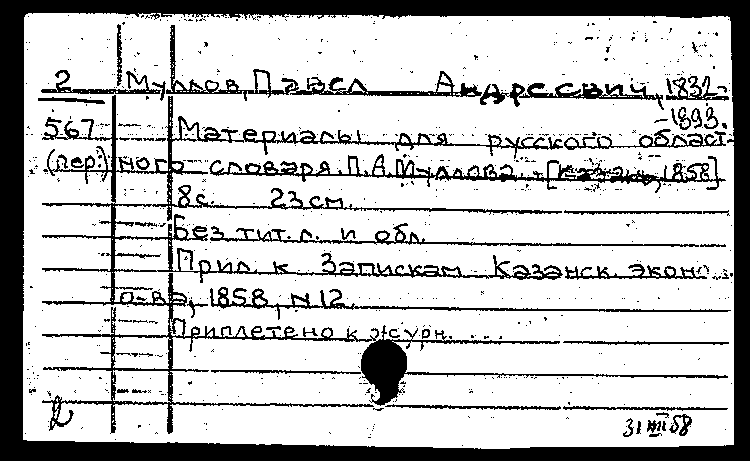 2 Муллов, Павел Андреевич, 1832-
-1893.
567 Материалы для русского област-
(пер.) ного словаря. П.А. Муллова. [Казань, 1858]
8с. 23см.
Без тит. л. и обл.
Прил. к Запискам Казанск. эконо...
о-ва, 1858, N12.
Приплетено к журн. ...
2
31 VII 58